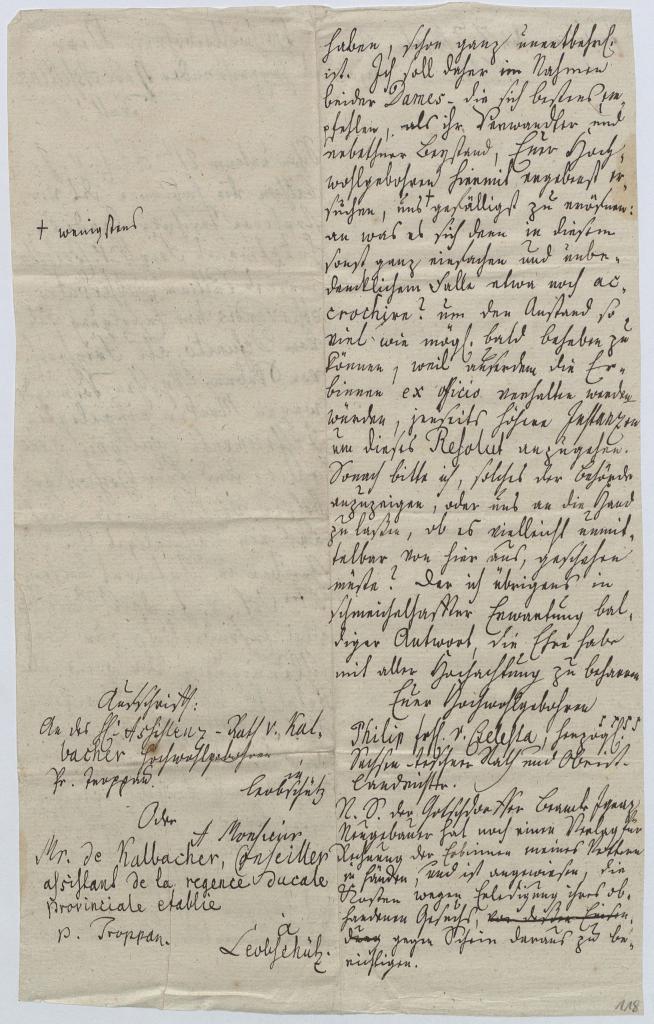 haben, schon ganz unentbehrl.
ist. Ich soll daher im Nahmen
beider Dames – die sich bestens em-
pfehlen, als ihr Verwandter und
erbethner Beystand, Euer Hoch-
wohlgebohren hiemit ergebenst er-
suchen, uns † gefälligst zu eröfnen:
an was es sich denn in diesem
sonst ganz einfachen und unbe-
denklichem Falle etwa noch ac-
crochire? um den Anstand so
viel wie mögl. bald beheben zu
können, weil ausserdem die Er-
binnen ex officio verhalten werden
würden, jenseits höhere Instanzen
um dieses Resolut anzugehen.
Sonach bitte ich, solches der Behörde
anzuzeigen, oder uns an die Hand
zu lassen, ob es vielleicht unmit-
telbar von hier aus, geschehen
müste? Der ich übrigens in
schmeichelhafter Erwartung bal-
diger Antwort, die Ehre habe
mit aller Hochachtung zu beharren
Euer Hochwohlgebohren
Philip frh. v. herzogl.
Sachsen-Teschner Rath und Oberst-
Landrichter.
N. S. der Beamte Ignaz
Neugebauer hat noch einen Verlag für
Rechnung der Erbinnen meines Vettern
in Händen, und ist angewiesen, die
Kosten wegen Erledigung ihres ob-
handenen Gesuchs, von dessen
gegen Schein daraus zu be-
richtigen.
† wenigstens
Aufschrift:
An des H. Assistenz-Rath v. Kal-
bacher Hochwohlgebohren
Pr. Troppau. in
Leobschütz
Oder
A Monsieur
Mr. de Kalbacher, Conseiller
assistant de la regence ducale
provinciale etablie
p. Troppau. à
Leobschütz.
118